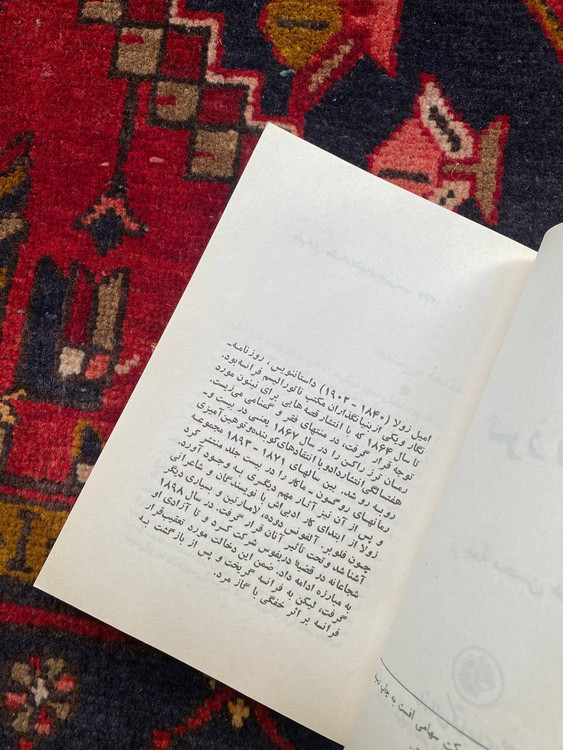 امیل زولا (۱۸۴۰ – ۱۹۰۲) داستاننویس، روزنامه‌-
نگار ویکی از بنیانگذاران مکتب ناتورالیسم فرانسه‌بود.
تا سال ۱۸۶۴ که با انتشار قصه هایی برای نینون مورد
توجه قرار گرفت، در منتهای فقر و گمنامی می‌زیست.
رمان ترز راکن را در سال ۱۸۶۷ یعنی در بیست و
هفتسالگی انتشارداد و با انتقادهای کوبنده و توهین‌آمیزی
روبه رو شد. بین سالهای ۱۸۷۱ – ۱۸۹۳ مجموعه
رمانهای روگون – ماکار را در بیست جلد منتشر کرد
و پس از آن نیز آثار مهم دیگری به وجود آورد.
زولا از ابتدای کار ادبی‌اش با نویسندگان و شاعرانی
چون فلوبر، آلفونس دوده، لامارتین و بسیاری دیگر
آشنا شد و تحت تأثیر آنان قرار گرفت. در سال ۱۸۹۸
شجاعانه در قضیهٔ دریفوس شرکت کرد و تا آزادی او
به مبارزه ادامه داد. ضمن این دخالت مورد تعقیب‌قرار
گرفت، لیکن به فرانسه گریخت و پس از بازگشت به
فرانسه بر اثر خفگی با گاز مرد.
سهامی افست به چاپ